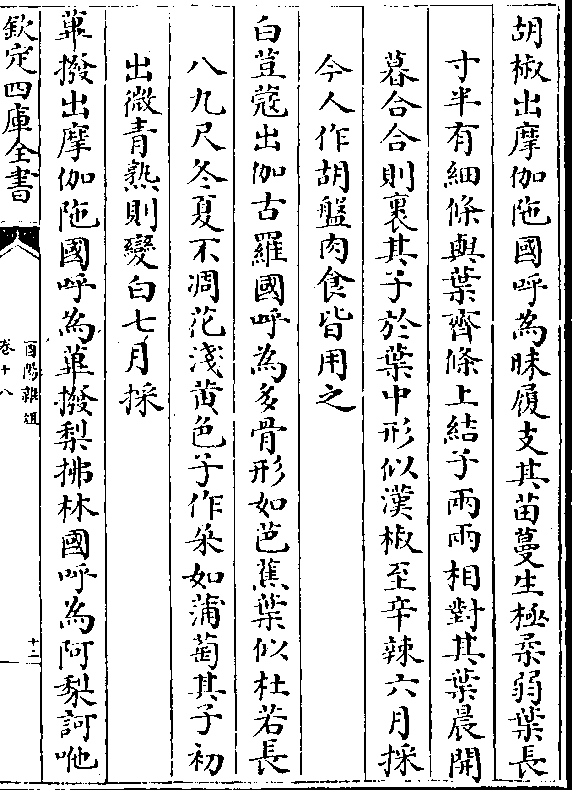 胡椒出摩伽陁國呼為昧履支其苗蔓生極柔弱葉長
寸半有細條與葉齊條上結子兩兩相對其葉晨開
暮合合則裹其子於葉中形似漢椒至辛辣六月採
今人作胡盤肉食皆用之
白荳蔻出伽古羅國呼為多骨形如芭蕉葉似杜若長
八九尺冬夏不凋花淺黄色子作朵如蒲萄其子初
出微青熟則變白七月採
蓽撥出摩伽陁國呼為蓽撥梨拂林國呼為阿梨訶咃
欽定四庫全書
酉陽雜俎
卷十八
十二